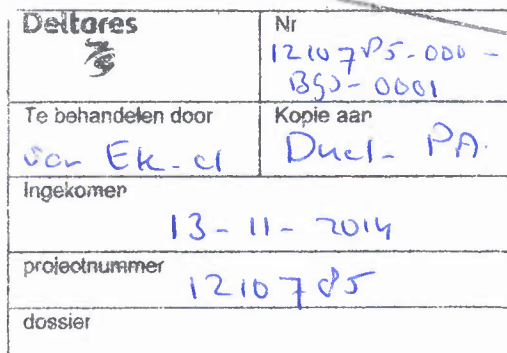 Deltares
Nr
1210785-000-
BGS-0001
Te behandelen door
van Ek-cl
Kopie aan
Duel- PA.
Ingekomen
13-11-2014
projectnummer
1210785
dossier